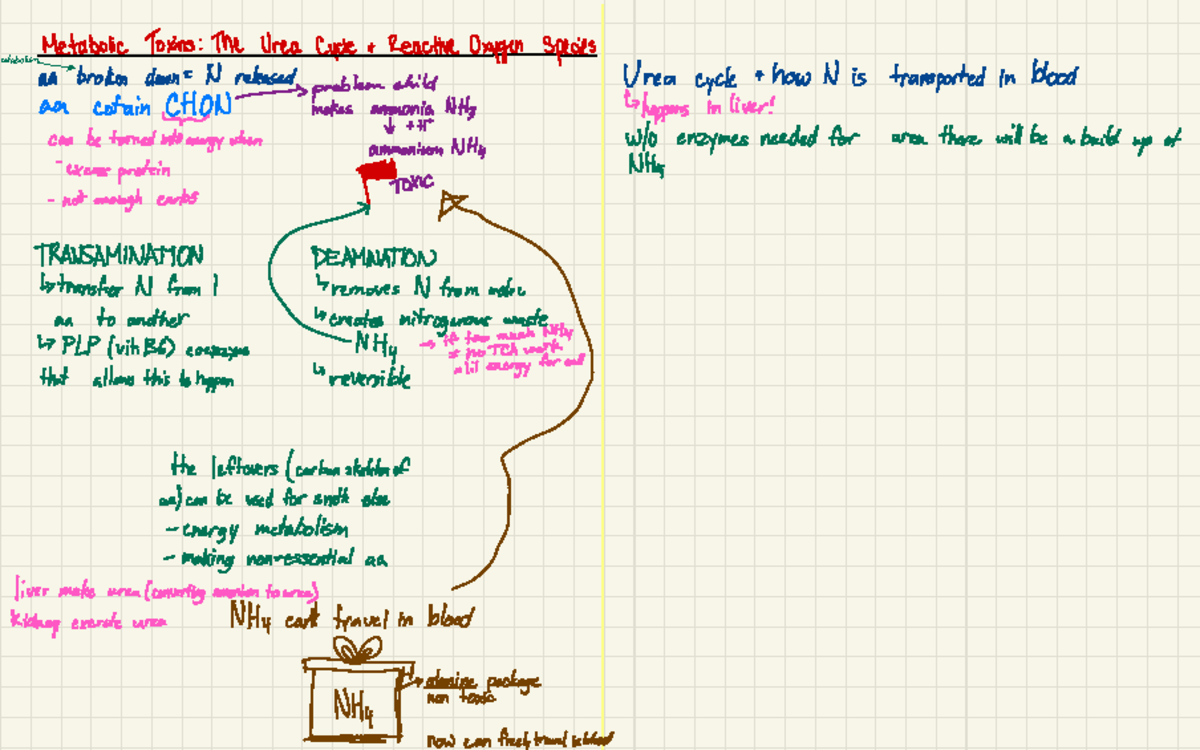 Metabolic Toxins: The Urea Cycle + Reactive Oxygen Species
aa broken down = N released
aa cotain CHON
problem child
makes ammonia NH4
↓ +H+
ammonium NH4
can be turned into energy when
- excess protein
- not enough carbs
TOXIC
TRANSAMINATION
↳ transfer N from 1
aa to another
↳ PLP (vit B6) coenzyme
that allows this to happen
DEAMNATION
↳ removes N from molec
↳ creates nitrogenous waste
NH4
→ if too much NH4
≠ no TCA work
= lil energy for cell
↳ reversible
the leftovers (carbon skeleton of
aa) can be used for smth else
- energy metabolism
- making non-essential aa
liver make urea (converting to urea)
Kidney excrete urea
NH4 cant travel in blood
NH4
alanine package
non toxic
now can freely travel in blood
Urea cycle + how N is transported in blood
↳ happens in liver!
w/o enzymes needed for area there will be a build up of
NH4